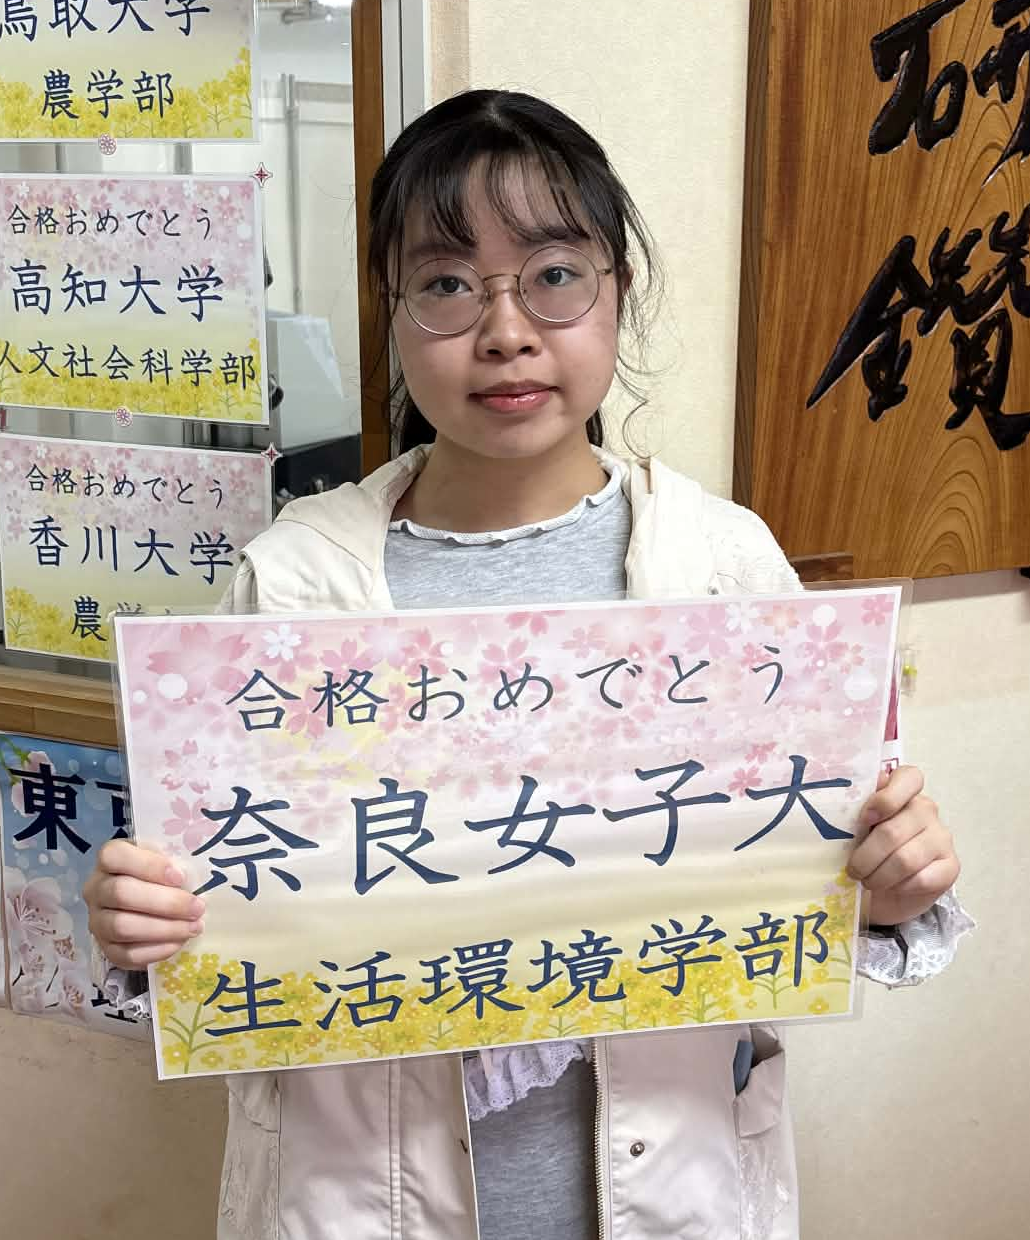 鳥取大学
農学部
合格おめでとう
高知大学
人文社会科学部
合格おめでとう
香川大学
農学
合格おめでとう
奈良女子大
生活環境学部
東京
研
鑽